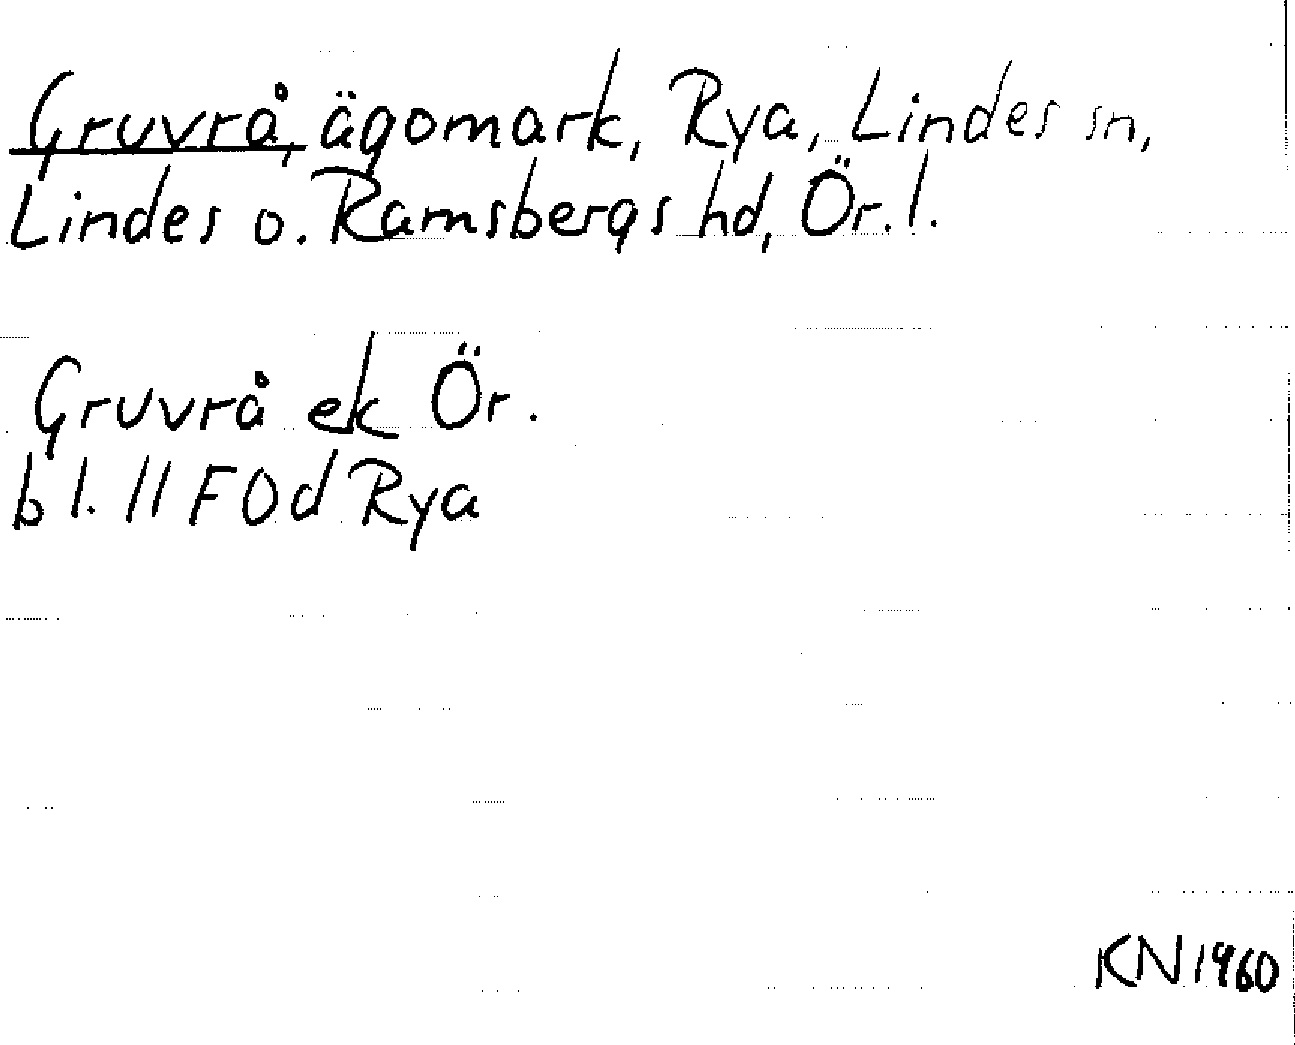 Gruvrå, ägomark, Rya, Lindes sn,
Lindes o. Ramsbergs hd, Ör. l.
Gruvrå ek Ör.
bl. 11 F0d Rya
KN 1960